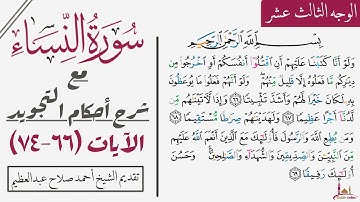 الوجه الثالث عشر
سورة النساء
مع
شرح أحكام التجويد
الآيات (٦٦-٧٤)
تقديم الشيخ أحمد صلاح عبدالعظيم
بِسْمِ اللَّهِ الرَّحْمَٰنِ الرَّحِيمِ
وَلَوْ أَنَّا كَتَبْنَا عَلَيْهِمْ أَنِ اقْتُلُوا أَنفُسَكُمْ أَوِ اخْرُجُوا مِن
دِيَارِكُم مَّا فَعَلُوهُ إِلَّا قَلِيلٌ مِّنْهُمْ وَلَوْ أَنَّهُمْ فَعَلُوا مَا يُوعَظُونَ
بِهِ لَكَانَ خَيْرًا لَّهُمْ وَأَشَدَّ تَثْبِيتًا ٦٦ وَإِذًا لَّآتَيْنَاهُم مِّن
لَّدُنَّا أَجْرًا عَظِيمًا ٦٧ وَلَهَدَيْنَاهُمْ صِرَاطًا مُّسْتَقِيمًا ٦٨
وَمَن يُطِعِ اللَّهَ وَالرَّسُولَ فَأُولَٰئِكَ مَعَ الَّذِينَ أَنْعَمَ اللَّهُ عَلَيْهِم
مِّنَ النَّبِيِّينَ وَالصِّدِّيقِينَ وَالشُّهَدَاءِ وَالصَّالِحِينَ وَحَسُنَ
أُولَٰئِكَ رَفِيقًا ٦٩